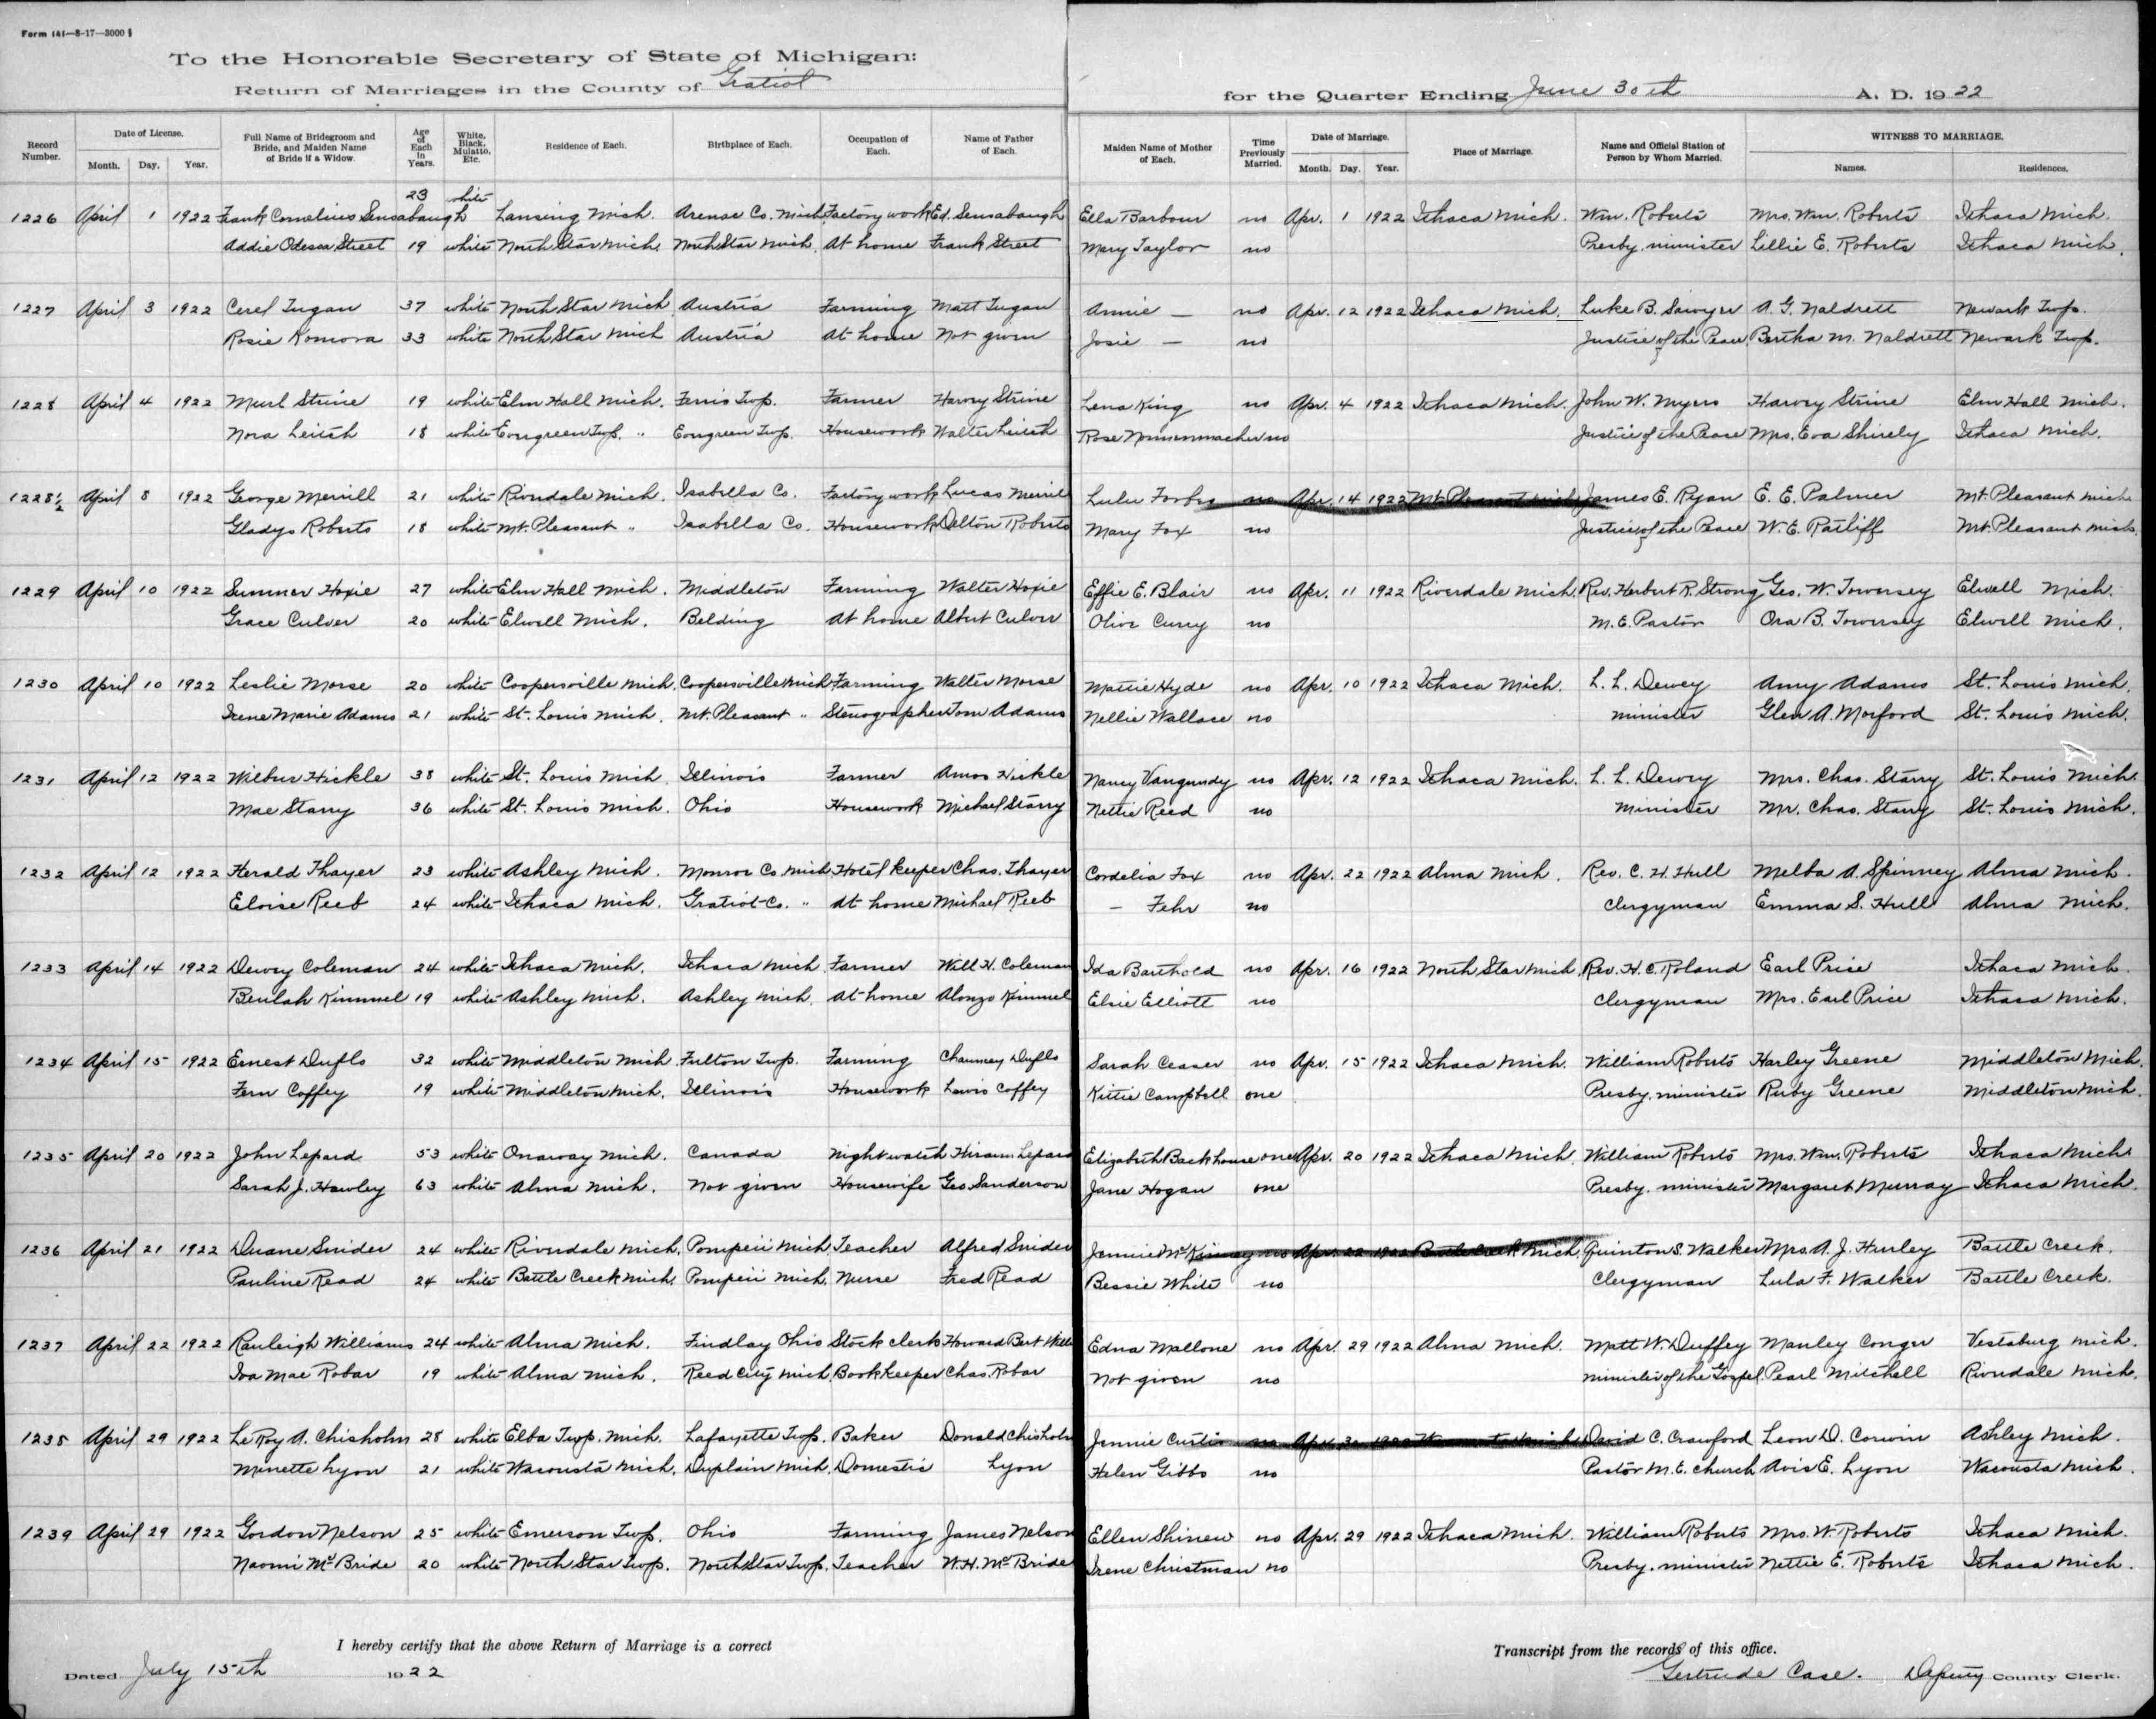 Form 141—8-17—3000
To the Honorable Secretary of State of Michigan:
Return of Marriages in the County of Gratiot for the Quarter Ending June 30th A. D. 1922
Record Number. Date of License. Month. Day. Year. Full Name of Bridegroom and Bride, and Maiden Name of Bride if a Widow. Age of Each in Years. White, Black, Mulatto, Etc. Residence of Each. Birthplace of Each. Occupation of Each. Name of Father of Each. Maiden Name of Mother of Each. Time Previously Married. Date of Marriage. Month. Day. Year. Place of Marriage. Name and Official Station of Person by Whom Married. WITNESS TO MARRIAGE. Names. Residences.
1226 April 1 1922 Frank Cornelius Sensabaugh 23 white Lansing Mich. Arenac Co. Mich Factory work Ed. Sensabaugh Ella Barbour no Apr. 1 1922 Ithaca Mich. Wm. Roberts Mrs. Wm. Roberts Ithaca Mich.
Addie Odessa Street 19 white North Star Mich. North Star Mich. At home Frank Street Mary Taylor no Presby. minister Lillie E. Roberts Ithaca Mich.
1227 April 3 1922 Cerel Tugan 37 white North Star Mich Austria Farming Matt Tugan Annie — no Apr. 12 1922 Ithaca Mich. Luke B. Sawyer A. G. Naldrett Newark Twp.
Rosie Komora 33 white North Star Mich Austria At home Not given Josie — no Justice of the Peace Bertha M. Naldrett Newark Twp.
1228 April 4 1922 Murl Strine 19 white Elm Hall Mich. Ferris Twp. Farmer Harvey Strine Lena King no Apr. 4 1922 Ithaca Mich. John W. Myers Harvey Strine Elm Hall Mich.
Nora Leitch 18 white Evergreen Twp. " Evergreen Twp. Housework Walter Leitch Rose Nonnenmacher no Justice of the Peace Mrs. Eva Shively Ithaca Mich.
1228½ April 8 1922 George Merrill 21 white Riverdale Mich. Isabella Co. Factory work Lucas Merrill Lulu Forbes no Apr. 14 1922 Mt. Pleasant Mich James E. Ryan E. E. Palmer Mt. Pleasant Mich
Gladys Roberts 18 white Mt. Pleasant " Isabella Co. Housework Delton Roberts Mary Fox no Justice of the Peace W. E. Ratliff Mt. Pleasant Mich.
1229 April 10 1922 Sumner Hoxie 27 white Elm Hall Mich. Middleton Farming Walter Hoxie Effie E. Blair no Apr. 11 1922 Riverdale Mich. Rev. Herbert R. Strong Geo. W. Towersey Elwell Mich.
Grace Culver 20 white Elwell Mich. Belding At home Albert Culver Olive Curry no M. E. Pastor Ora B. Towersey Elwell Mich.
1230 April 10 1922 Leslie Morse 20 white Coopersville Mich. Coopersville Mich Farming Walter Morse Mattie Hyde no Apr. 10 1922 Ithaca Mich. L. L. Dewey Amy Adams St. Louis Mich.
Irene Marie Adams 21 white St. Louis Mich. Mt. Pleasant " Stenographer Tom Adams Nellie Wallace no minister Glen A. Morford St. Louis Mich.
1231 April 12 1922 Wilbur Hickle 38 white St. Louis Mich. Illinois Farmer Amos Hickle Nancy Vangundy no Apr. 12 1922 Ithaca Mich. L. L. Dewey Mrs. Chas. Starry St. Louis Mich.
Mae Starry 36 white St. Louis Mich. Ohio Housework Michael Starry Nettie Reed no Minister Mr. Chas. Starry St. Louis Mich.
1232 April 12 1922 Herald Thayer 23 white Ashley Mich. Monroe Co. Mich Hotel keeper Chas. Thayer Cordelia Fox no Apr. 22 1922 Alma Mich. Rev. C. H. Hull Melba A. Spinney Alma Mich.
Eloise Reeb 24 white Ithaca Mich. Gratiot Co. " At home Michael Reeb — Fehr no Clergyman Emma S. Hull Alma Mich.
1233 April 14 1922 Dewey Coleman 24 white Ithaca Mich. Ithaca Mich. Farmer Will H. Coleman Ida Barthold no Apr. 16 1922 North Star Mich. Rev. H. C. Roland Earl Price Ithaca Mich.
Beulah Kimmel 19 white Ashley Mich. Ashley Mich. At home Alonzo Kimmel Elsie Elliott no Clergyman Mrs. Earl Price Ithaca Mich.
1234 April 15 1922 Ernest Duflo 32 white Middleton Mich. Fulton Twp. Farming Chauncey Duflo Sarah Ceaser no Apr. 15 1922 Ithaca Mich. William Roberts Harley Greene Middleton Mich.
Fern Coffey 19 white Middleton Mich. Illinois Housework Lewis Coffey Kittie Campbell one Presby. minister Ruby Greene Middleton Mich.
1235 April 20 1922 John Lepard 53 white Onaway Mich. Canada Night watch Hiram Lepard Elizabeth Backhouse one Apr. 20 1922 Ithaca Mich. William Roberts Mrs. Wm. Roberts Ithaca Mich
Sarah J. Hawley 63 white Alma Mich. Not given Housewife Geo. Sanderson Jane Hogan one Presby. minister Margaret Murray Ithaca Mich.
1236 April 21 1922 Duane Snider 24 white Riverdale Mich. Pompeii Mich Teacher Alfred Snider Jennie McKinney no Apr. 22 1922 Battle Creek Mich. Quinton S. Walker Mrs. A. J. Hurley Battle Creek.
Pauline Read 24 white Battle Creek Mich. Pompeii Mich. Nurse Fred Read Bessie White no Clergyman Lula F. Walker Battle Creek.
1237 April 22 1922 Rauleigh Williams 24 white Alma Mich. Findlay Ohio Stock clerk Howard Bert Edna Mallone no Apr. 29 1922 Alma Mich. Matt W. Duffey Manley Conger Vestaburg Mich.
Iva Mae Robar 19 white Alma Mich. Reed City Mich. Bookkeeper Chas. Robar Not given no minister of the Gospel. Pearl Mitchell Riverdale Mich.
1238 April 29 1922 LeRoy A. Chisholm 28 white Elba Twp. Mich. Lafayette Twp. Baker Donald Chisholm Jennie Curtis no Apr. 30 1922 David C. Crawford Leon D. Corwin Ashley Mich.
Minette Lyon 21 white Wacousta Mich. Duplain Mich. Domestic Lyon Helen Gibbs no Pastor M. E. Church Avis E. Lyon Wacousta Mich.
1239 April 29 1922 Gordon Nelson 25 white Emerson Twp. Ohio Farming James Nelson Ellen Shinew no Apr. 29 1922 Ithaca Mich. William Roberts Mrs. W. Roberts Ithaca Mich.
Naomi McBride 20 white North Star Twp. North Star Twp. Teacher W. H. McBride Irene Christman no Presby. minister Nettie E. Roberts Ithaca Mich.
I hereby certify that the above Return of Marriage is a correct Transcript from the records of this office.
Dated July 15th 1922 Gertrude Case. Deputy County Clerk.